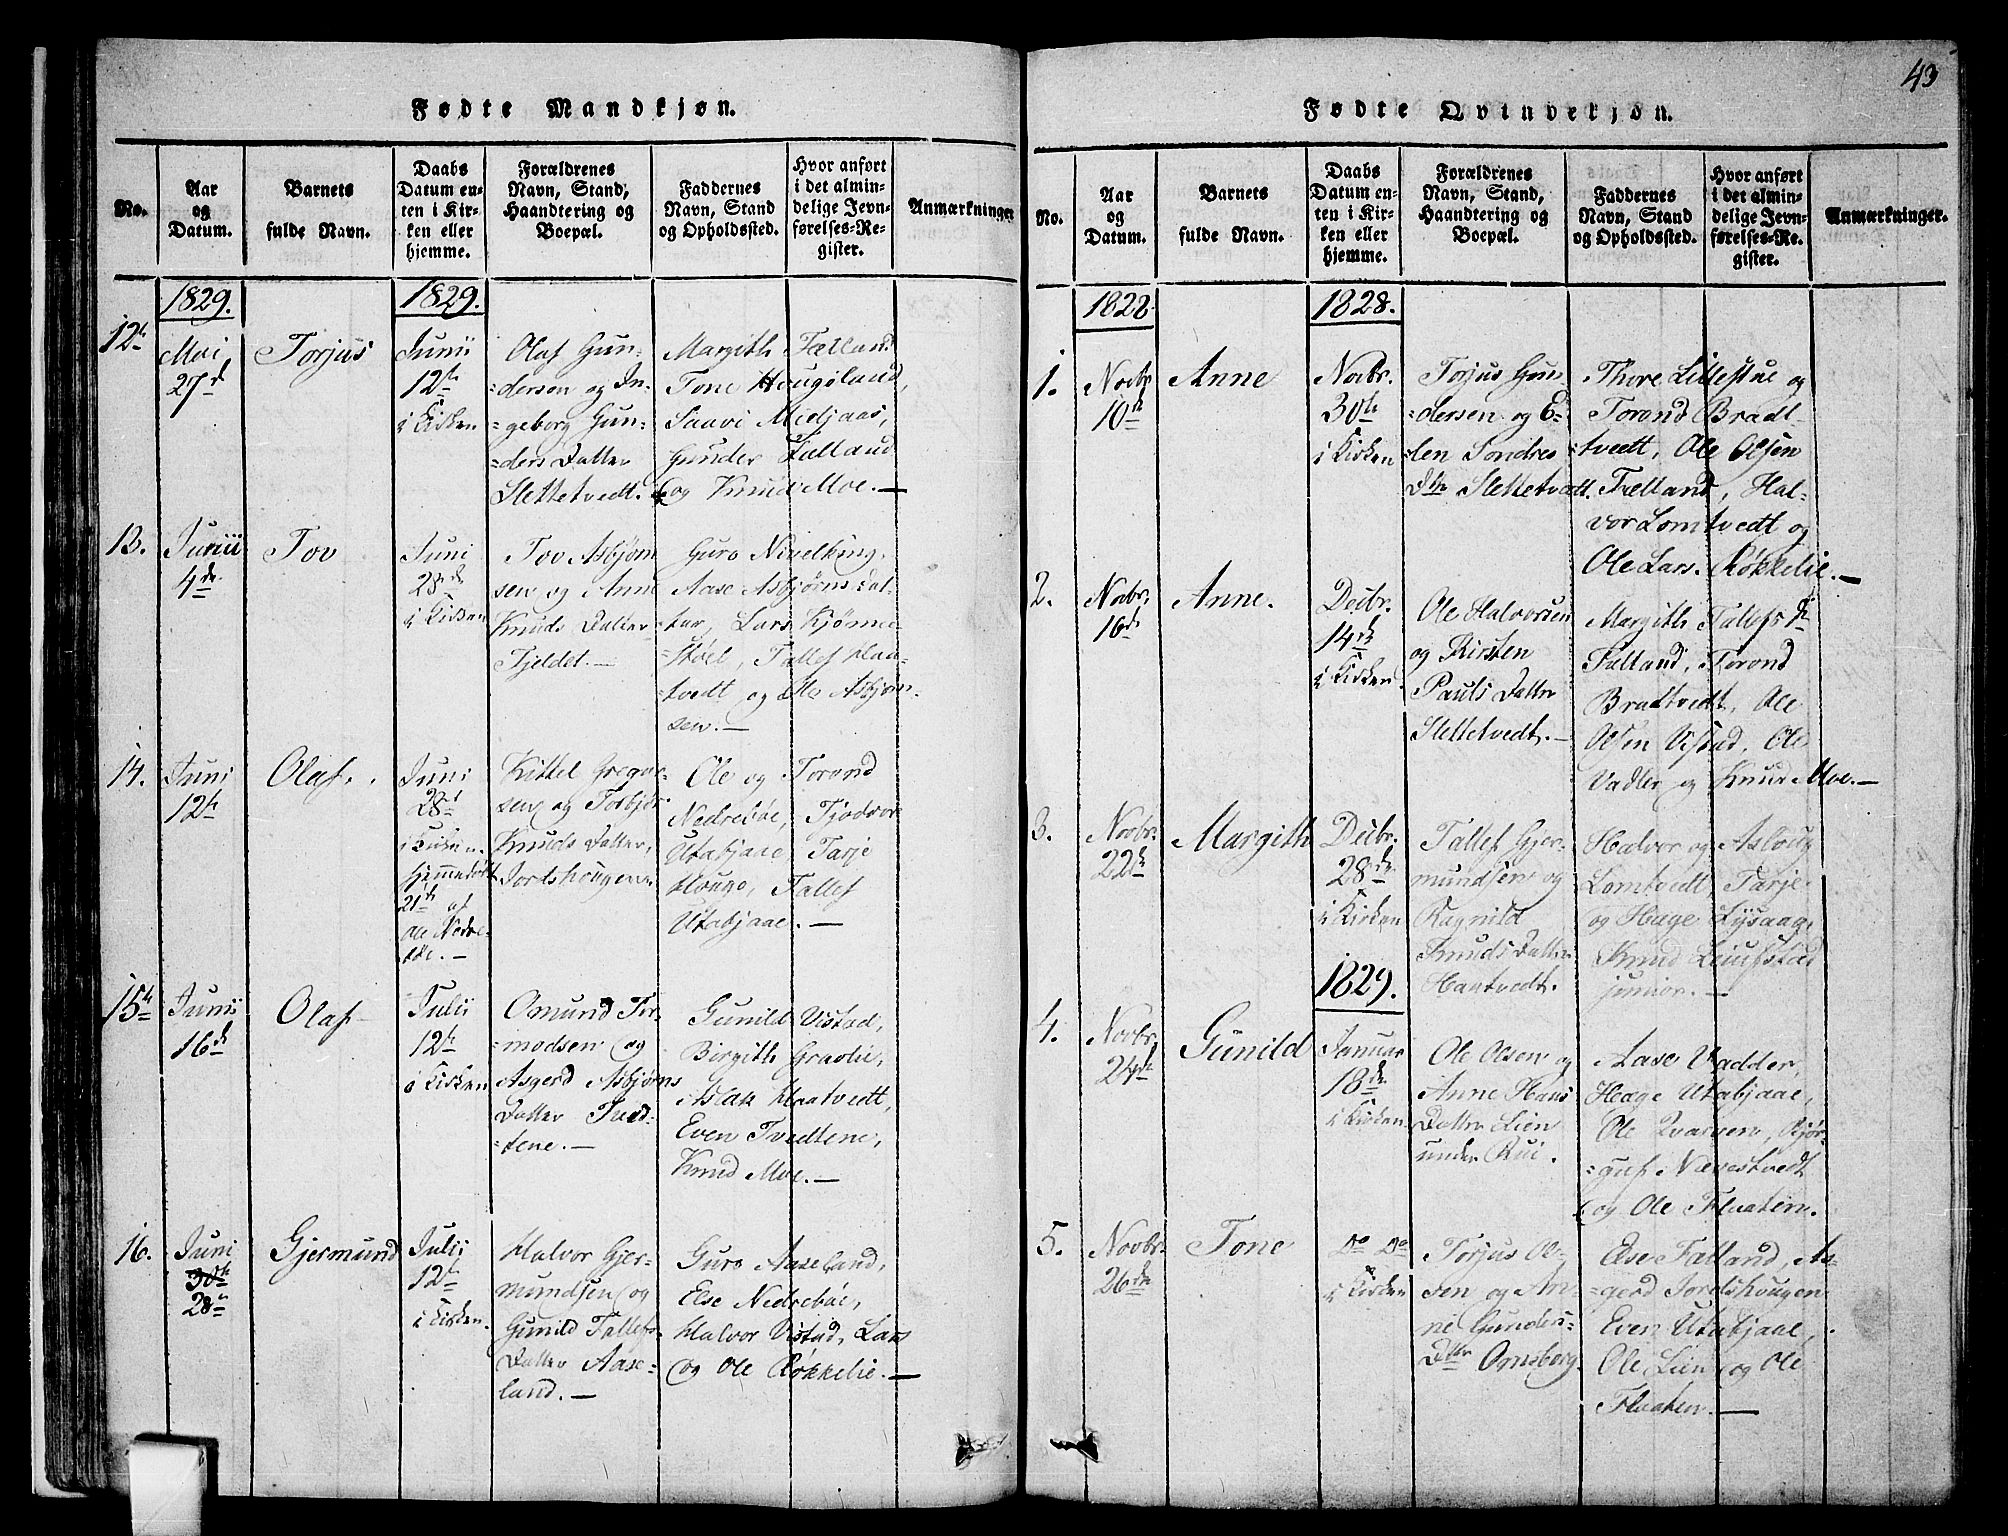 43
Fødte Mandkjøn.
No.
Aar
og
Datum.
Barnets
fulde Navn.
Daabs
Datum en-
ten i Kir-
ken eller
hjemme.
Forældrenes
Navn, Stand,
Haandtering og
Boepæl.
Faddernes
Navn, Stand
og Opholdssted.
Hvor anført
i det almin-
delige Jevn-
førelses-Re-
gister.
Anmærkninger
1829.
1829.
12te
Mai
27d
Torjus
Junii
12te
i Kirken
Olaf Gun-
=dersen og In-
=geborg Gun-
=ders Datter
Slettetvedt.
Margith Fælland
Tone Hougsland,
Saavi Midjaas,
Gunder Fælland
og Knud Moe. —
13.
Junii
4de
Tov
Juni
28de
i Kirken
Tov Asbjørn
sen og Anne
Knuds Datter
Fjeldet. —
Guro
Aase Asbjørns Dat-
=ter, Lars Kjønne-
=støel, Tallef Haa-
=tvedt og Ole Asbjørn-
sen. —
14.
Juni
12te
Olaf.
Juni
28d
i Kirken.
hjemmedøbt
21de af
Ole Nedre-
bøe. —
Kittel Gregar-
sen og Torbjør
Knuds Datter,
Jordshougen.
Ole og Torond
Nedrebøe, Tjodvor
Utabjaae, Tarje
Houge, Tallef
Utabjaae. —
15de
Junii
16d
Olaf
Julii
12te
i Kirken
Omund Tor-
=modsen og
Asgerd Asbjørns
Datter Tved-
=tene. —
Gunild Vistad,
Birgith Graolie,
Aslak Haatvedt,
Even Tvedtene,
Knud Moe. —
16.
Juni
30te
28de
Gjermund
Julii
12te
i Kirken.
Halvor Gjer-
mundsen og
Gunild Tallefs
Datter Aase-
land. —
Guro Aaseland,
Else Nedrebøe,
Halvor Vistad, Lars
og Ole Røkkelie. —
Fødte Qvindekjøn.
No.
Aar
og
Datum.
Barnets
fulde Navn.
Daabs
Datum en-
ten i Kir-
ken eller
hjemme.
Forældrenes
Navn, Stand,
Haandtering og
Boepæl.
Faddernes
Navn, Stand
og Opholdssted.
Hvor anført
i det almin-
delige Jevn-
førelses-Re-
gister.
Anmærkninger.
1828.
1828.
1.
Novbr.
10de
Anne
Novbr.
30te
i Kirken
Torjus Gun-
=dersen og E-
=len Sondres
Dtr Slettetvedt.
Thore Lillestue og
Torond Bradt-
=tvedt, Ole Olsen
Fælland, Hal-
vor Lomtvedt og
Ole Lars. Røkkelie. —
2.
Novbr.
16de
Anne.
Decbr.
14de
i Kirken.
Ole Halvorsen
og Kirsten
Pauls Datter
Slettetvedt. —
Margith Tallefs D.
Fælland, Torond
Bradtvedt, Ole
Vistad, Ole
Vadder og Knud Moe. —
3.
Novbr.
22de
Margith
Decbr.
28de
i Kirken
Tallef Gjer-
mundsen og
Ragnild
Knuds Datter
Haatvedt.
Halvor og Asloug
Lomtvedt, Tarje
og Hæge Lysaag,
Knud Leiufstad
junior. —
1829.
4.
Novbr.
24de
Gunild
Januar
18de
i Kirken
Ole Olsen og
Anne Hans
Datter Lien
under Rui.
Aase Vadder,
Hæge Utabjaae,
Ole Kvarven, Bjør-
=guf Nævestvedt
og Ole Flaaten.
5.
Novbr.
26de
Tone
Do Do
i Kirken
Torjus Ol-
sen og An-
ne Gunders-
Dttr Ornsberg.
Else Fælland, As-
gerd Jordshougen
Even Utabjaae,
Ole Lien og Ole
Flaaten. —